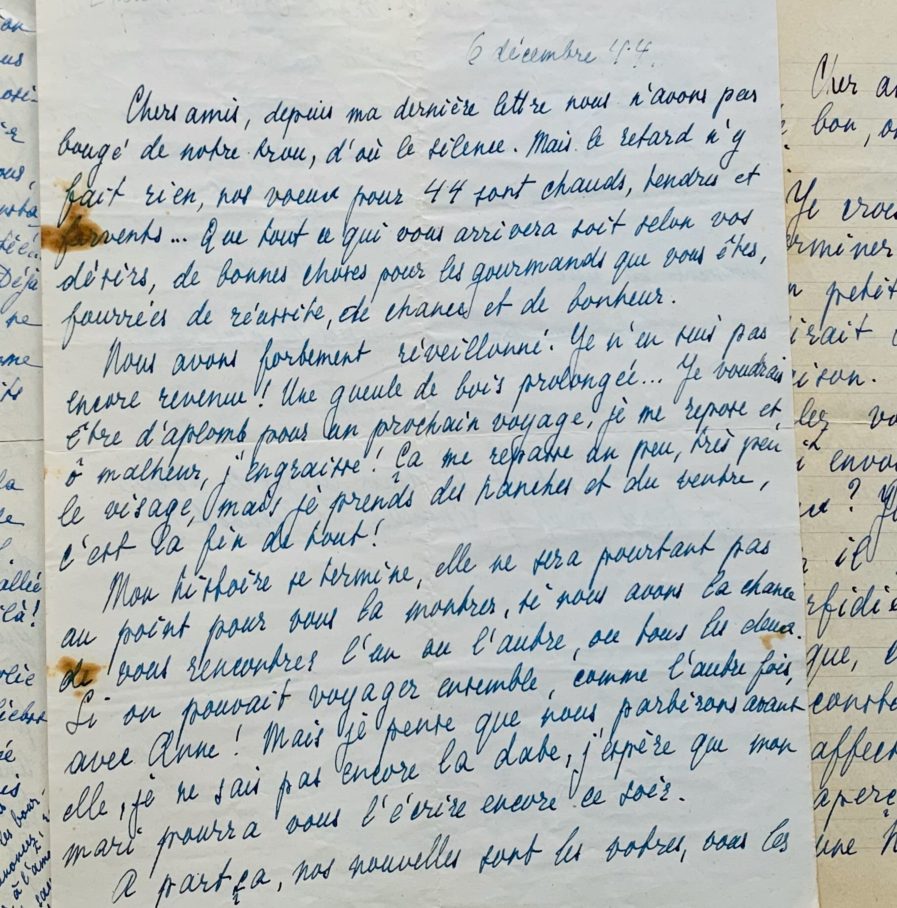 6 décembre 44.
Chers amis, depuis ma dernière lettre nous n'avons pas
bougé de notre trou, d'où le silence. Mais le retard n'y
fait rien, nos voeux pour 44 sont chauds, tendres et
fervents... Que tout ce qui vous arrivera soit selon vos
désirs, de bonnes choses pour les gourmands que vous êtes,
fourrées de réussite, de chance et de bonheur.
Nous avons fortement réveillonné. Je n'en suis pas
encore revenue! Une gueule de bois prolongée... Je voudrais
être d'aplomb pour un prochain voyage, je me repose et
ô malheur, j'engraisse! Ça me repasse un peu, très peu
le visage, mais je prends des hanches et du ventre,
c'est la fin de tout!
Mon histoire se termine, elle ne sera pourtant pas
au point pour vous la montrer, si nous avons la chance
de vous rencontrer l'un ou l'autre, ou tous les deux.
Si on pouvait voyager ensemble, comme l'autre fois,
avec Anne! Mais je pense que nous partirons avant
elle, je ne sais pas encore la date, j'espère que mon
mari pourra vous l'écrire encore ce soir.
A part ça, nos nouvelles sont les votres, vous les
Déjà
ne
la
allié
Cher
bon,
Je
petit
irait
envo
il
que,
affect
une